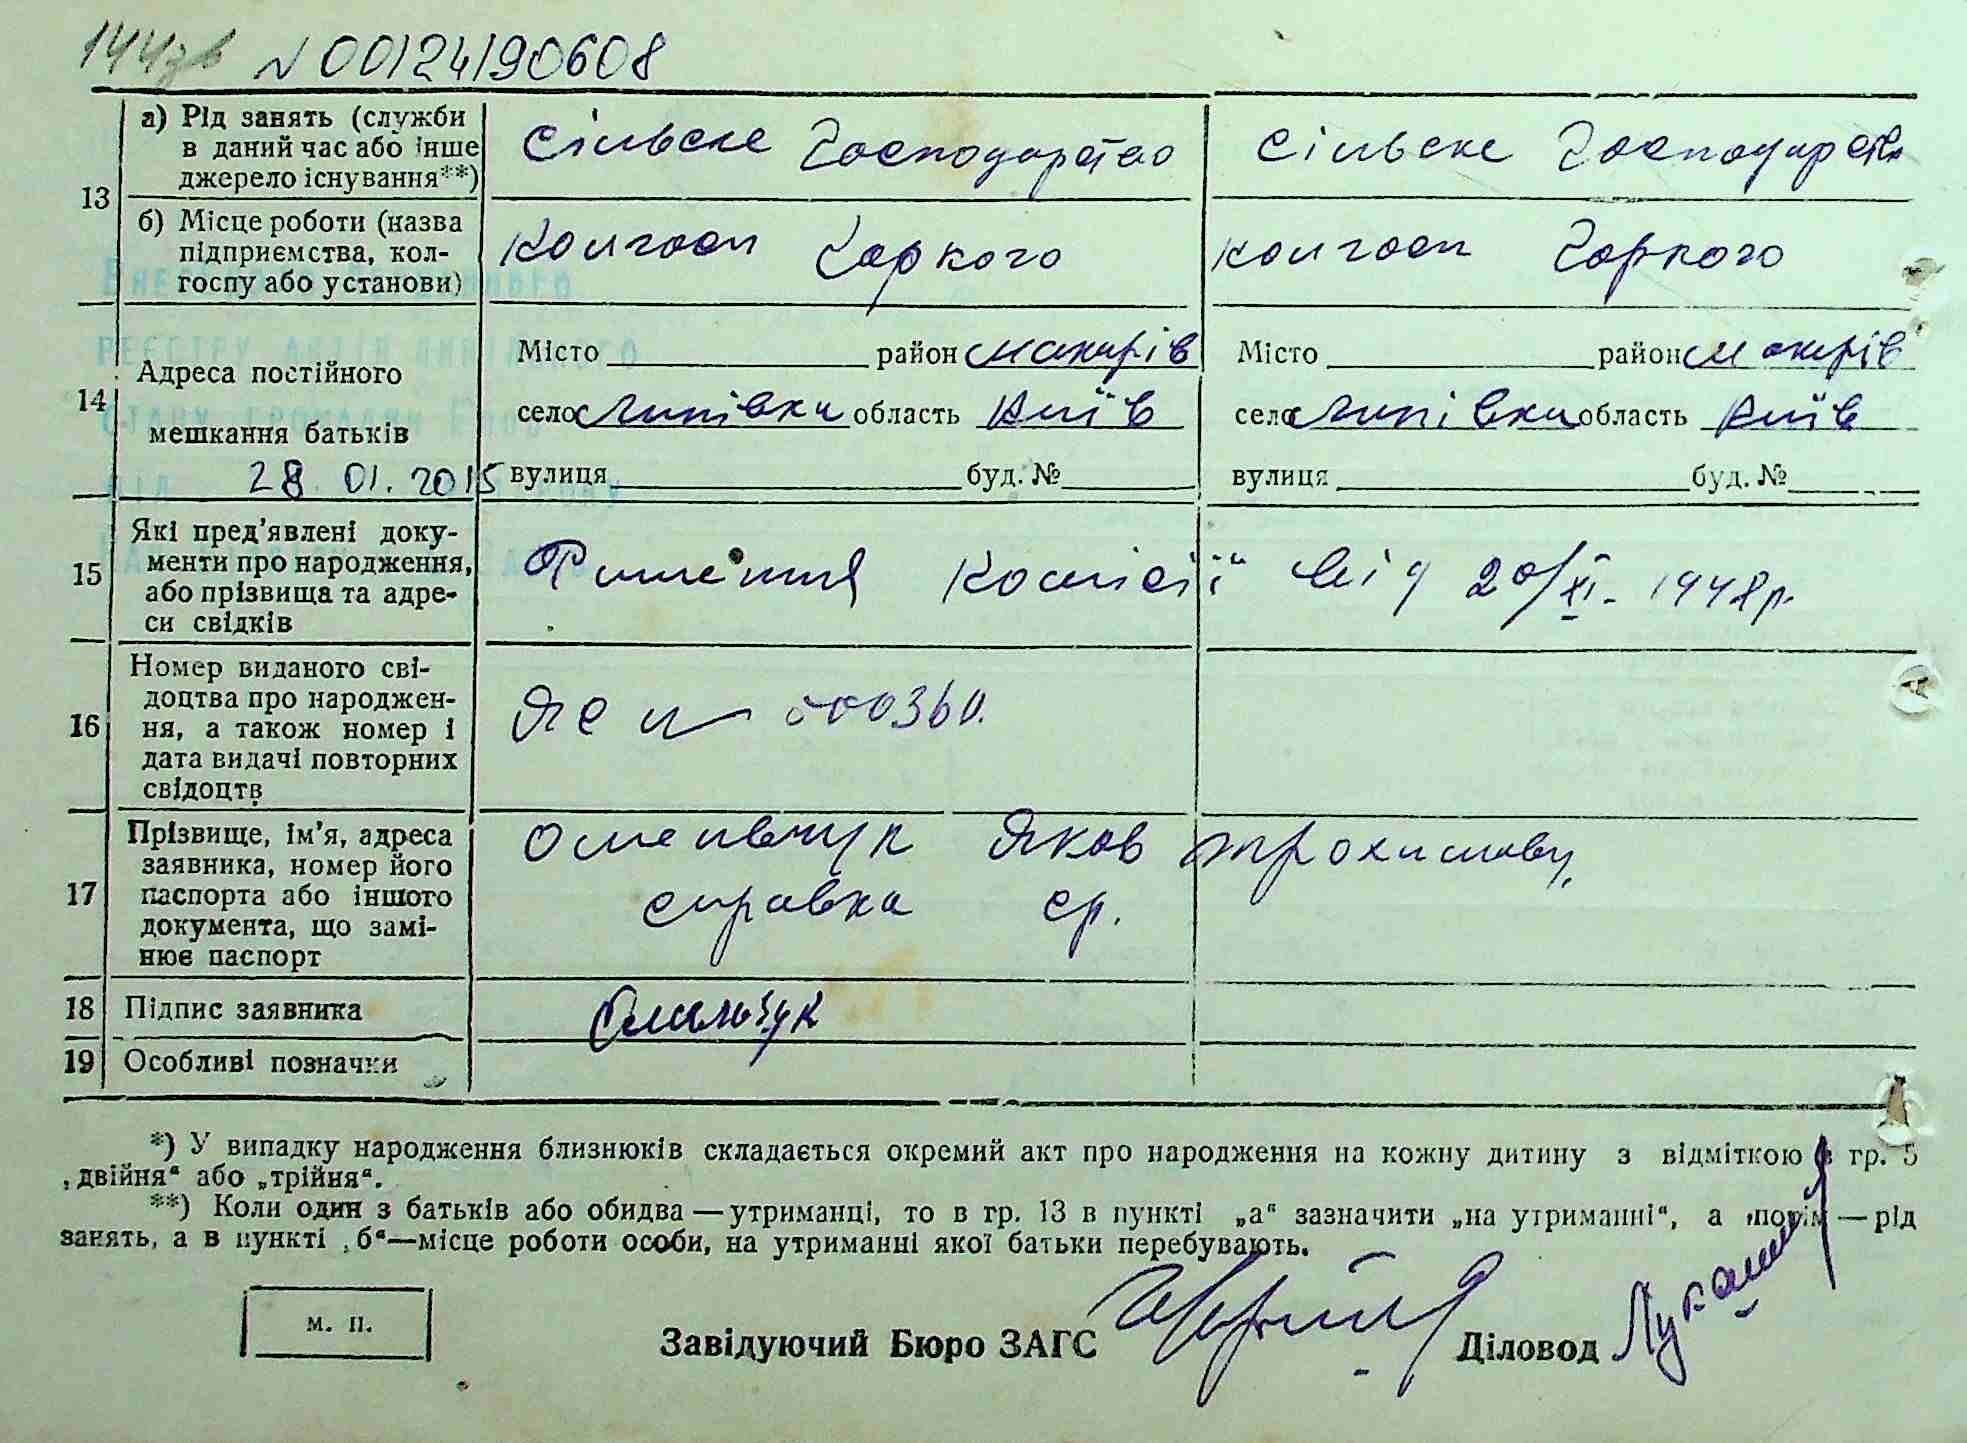 144зв N 00124190608
13
а) Рід занять (служби в даний час або інше джерело існування**)
Сільське Господарство
Сільське Господарство
б) Місце роботи (назва підприємства, колгоспу або установи)
Колгосп Горкого
Колгосп Горкого
Внесено до Державного
реєстру актів цивільного
стану громадян
14
Адреса постійного
мешкання батьків
28.01.2015
Місто район Макарів
село Липівка область Київ
вулиця буд. №
Місто район Макарів
село Липівка область Київ
вулиця буд. №
15
Які пред’явлені документи про народження, або прізвища та адреси свідків
Рішення Комісії від 20/XI. 1948р.
16
Номер виданого свідоцтва про народження, а також номер і дата видачі повторних свідоцтв
ЯС N 000360.
17
Прізвище, ім’я, адреса заявника, номер його паспорта або іншого документа, що замінює паспорт
Омельчук Яков Трохимову,
справка ср.
18 Підпис заявника
Омельчук
19 Особливі позначки
*) У випадку народження близнюків складається окремий акт про народження на кожну дитину з відміткою в гр. 5
„двійня“ або „трійня“.
**) Коли один з батьків або обидва — утриманці, то в гр. 13 в пункті „а“ зазначити „на утриманні“, а потім — рід
занять, а в пункті „б“—місце роботи особи, на утриманні якої батьки перебувають.
м. п.
Завідуючий Бюро ЗАГС
Діловод